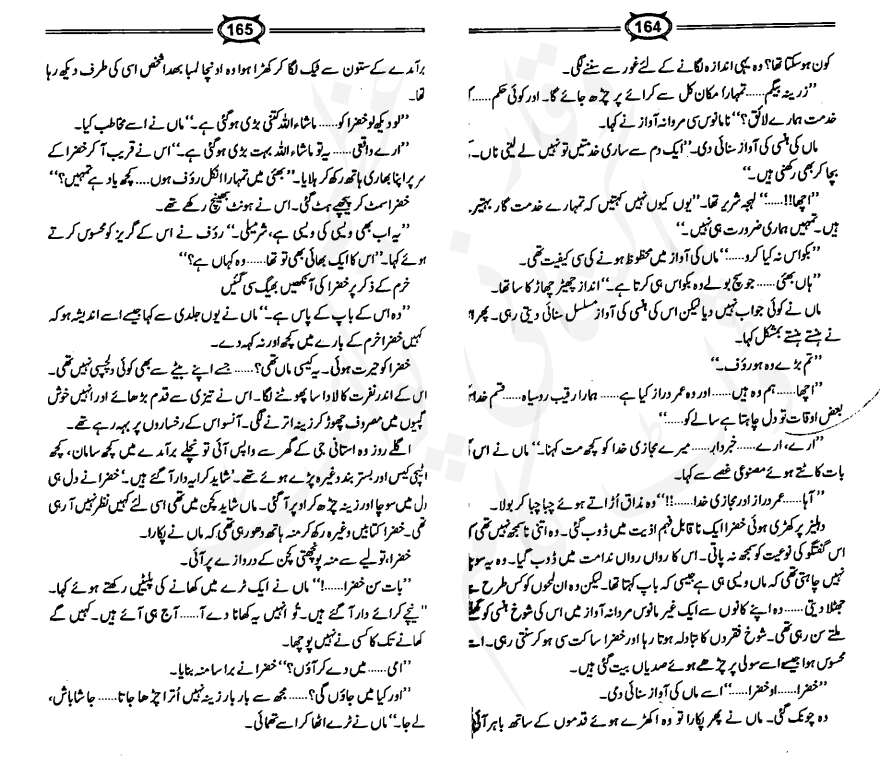 164
کون ہوسکتا تھا؟ وہ یہی اندازہ لگانے کے لئے غور سے سننے لگی۔
”زرینہ بیگم...... تمہارا مکان کل سے کرائے پر چڑھ جائے گا۔ اور کوئی حکم......
خدمت ہمارے لائق؟“ نامانوس سی مردانہ آواز نے کہا۔
ماں کی ہنسی کی آواز سنائی دی۔ ”ایک دم سے ساری خدمتیں تو نہیں لے لیتی ناں۔
بچا کر بھی رکھنی ہیں۔“
”اچھا!!......“ لہجہ شریر تھا۔ ”یوں کیوں نہیں کہتیں کہ تمہارے خدمت گار بہتیرے
ہیں۔ تمہیں ہماری ضرورت ہی نہیں۔“
”بکواس نہ کیا کرو......“ ماں کی آواز میں محظوظ ہونے کی سی کیفیت تھی۔
”ہاں بھئی...... جو سچ بولے وہ بکواس ہی کرتا ہے۔“ انداز چھیڑ چھاڑ کا سا تھا۔
ماں نے کوئی جواب نہیں دیا لیکن اس کی ہنسی کی آواز مسلسل سنائی دیتی رہی۔ پھر
نے ہنستے ہنستے بمشکل کہا۔
”تم بڑے وہ ہو رؤف۔“
”اچھا...... ہم وہ ہیں...... اور وہ عمر دراز کیا ہے...... ہمارا رقیب روسیاہ...... قسم خدا
بعض اوقات تو دل چاہتا ہے سالے کو......“
”ارے، ارے...... خبردار...... میرے مجازی خدا کو کچھ مت کہنا۔“ ماں نے اس
بات کاٹتے ہوئے مصنوعی غصے سے کہا۔
”آہا...... عمر دراز اور مجازی خدا......!!“ وہ مذاق اُڑاتے ہوئے چبا چبا کر بولا۔
دہلیز پر کھڑی ہوئی خضرا ایک ناقابل فہم اذیت میں ڈوب گئی۔ وہ اتنی ناسمجھ نہیں تھی
اس گفتگو کی نوعیت کو سمجھ نہ پاتی۔ اس کا رواں رواں ندامت میں ڈوب گیا۔ وہ یہ
نہیں چاہتی تھی کہ ماں ویسی ہی ہے جیسی کہ باپ کہتا تھا۔ لیکن وہ ان لمحوں کو کس طرح
جھٹلا دیتی...... وہ اپنے کانوں سے ایک غیر مانوس مردانہ آواز میں اس کی شوخ ہنسی کو
ملتے سن رہی تھی۔ شوخ فقروں کا تبادلہ ہوتا رہا اور خضرا ساکت سی ہو کر سنتی رہی۔ اسے
محسوس ہوا جیسے اسے سولی پر چڑھے ہوئے صدیاں بیت گئی ہیں۔
”خضرا...... او خضرا......“ اسے ماں کی آواز سنائی دی۔
وہ چونک گئی۔ ماں نے پھر پکارا تو وہ اکھڑے ہوئے قدموں کے ساتھ باہر آئی
165
برآمدے کے ستون سے ٹیک لگا کر کھڑا ہوا وہ اونچا لمبا بھدا شخص اسی کی طرف دیکھ رہا
تھا۔
”لو دیکھ لو خضرا کو...... ماشاء اللہ کتنی بڑی ہو گئی ہے۔“ ماں نے اسے مخاطب کیا۔
”ارے واقعی...... یہ تو ماشاء اللہ بہت بڑی ہو گئی ہے۔“ اس نے قریب آ کر خضرا کے
سر پر اپنا بھاری ہاتھ رکھ کر ہلایا۔ ”بھئی میں تمہارا انکل رؤف ہوں.... کچھ یاد ہے تمہیں؟“
خضرا سمٹ کر پیچھے ہٹ گئی۔ اس نے ہونٹ بھینچ رکھے تھے۔
”یہ اب بھی ویسی کی ویسی ہے، شرمیلی۔“ رؤف نے اس کے گریز کو محسوس کرتے
ہوئے کہا۔ ”اس کا ایک بھائی بھی تو تھا...... وہ کہاں ہے؟“
خرم کے ذکر پر خضرا کی آنکھیں بھیگ سی گئیں
”وہ اس کے باپ کے پاس ہے۔“ ماں نے یوں جلدی سے کہا جیسے اسے اندیشہ ہو کہ
کہیں خضرا خرم کے بارے میں کچھ اور نہ کہہ دے۔
خضرا کو حیرت ہوئی۔ یہ کیسی ماں تھی؟...... جسے اپنے بیٹے سے بھی کوئی دلچسپی نہیں تھی۔
اس کے اندر نفرت کا لاوا سا پھوٹنے لگا۔ اس نے تیزی سے قدم بڑھائے اور انہیں خوش
گپیوں میں مصروف چھوڑ کر زینہ اترنے لگی۔ آنسو اس کے رخساروں پر بہہ رہے تھے۔
اگلے روز وہ استانی جی کے گھر سے واپس آئی تو نچلے برآمدے میں کچھ سامان، کچھ
اٹیچی کیس اور بستر بند وغیرہ پڑے ہوئے تھے۔ ’شاید کرایہ دار آ گئے ہیں۔‘ خضرا نے دل ہی
دل میں سوچا اور زینہ چڑھ کر اوپر آ گئی۔ ماں شاید کچن میں تھی اسی لئے کہیں نظر نہیں آ رہی
تھی۔ خضرا کتابیں وغیرہ رکھ کر منہ ہاتھ دھو رہی تھی کہ ماں نے پکارا۔
خضرا، تولیے سے منہ پونچھتی کچن کے دروازے پر آئی۔
”بات سن خضرا......!“ ماں نے ایک ٹرے میں کھانے کی پلیٹیں رکھتے ہوئے کہا۔
”نیچے کرائے دار آ گئے ہیں۔ تُو انہیں یہ کھانا دے آ...... آج ہی آئے ہیں۔ کہیں گے
کھانے تک کا کسی نے نہیں پوچھا۔
”امی...... میں دے کر آؤں؟“ خضرا نے برا سا منہ بنایا۔
”اور کیا میں جاؤں گی؟...... مجھ سے بار بار زینہ نہیں اُترا چڑھا جاتا...... جا شاباش،
لے جا۔“ ماں نے ٹرے اٹھا کر اسے تھمائی۔